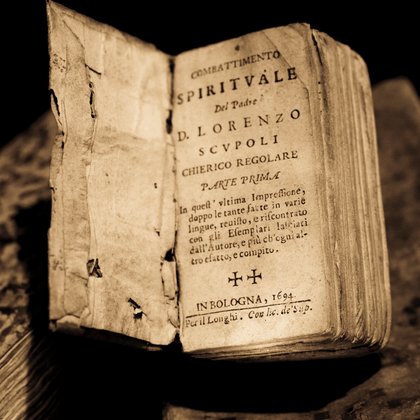 COMBATTIMENTO
SPIRITVALE
Del Padre
D. LORENZO
SCVPOLI
CHIERICO REGOLARE
PARTE PRIMA
In quest' vltima Impressione,
doppo le tante fatte in varie
lingue, reuisto, e riscontrato
con gli Esemplari lasciati
dall'Autore, e più ch'ogni al-
tro esatto, e compito.
IN BOLOGNA, 1694
Per il Longhi. Con lic. de' Sup.